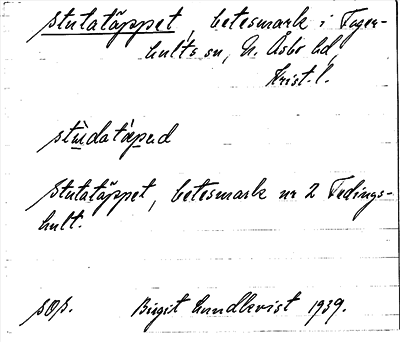 Stutatäppet, betesmark i Fager-
hults sn, N. Åsbo hd,
Krist. l.
stùdatäped
Stutatäppet, betesmark nr 2 Fedings-
hult.
sop.
Birgit Lundkvist 1939.